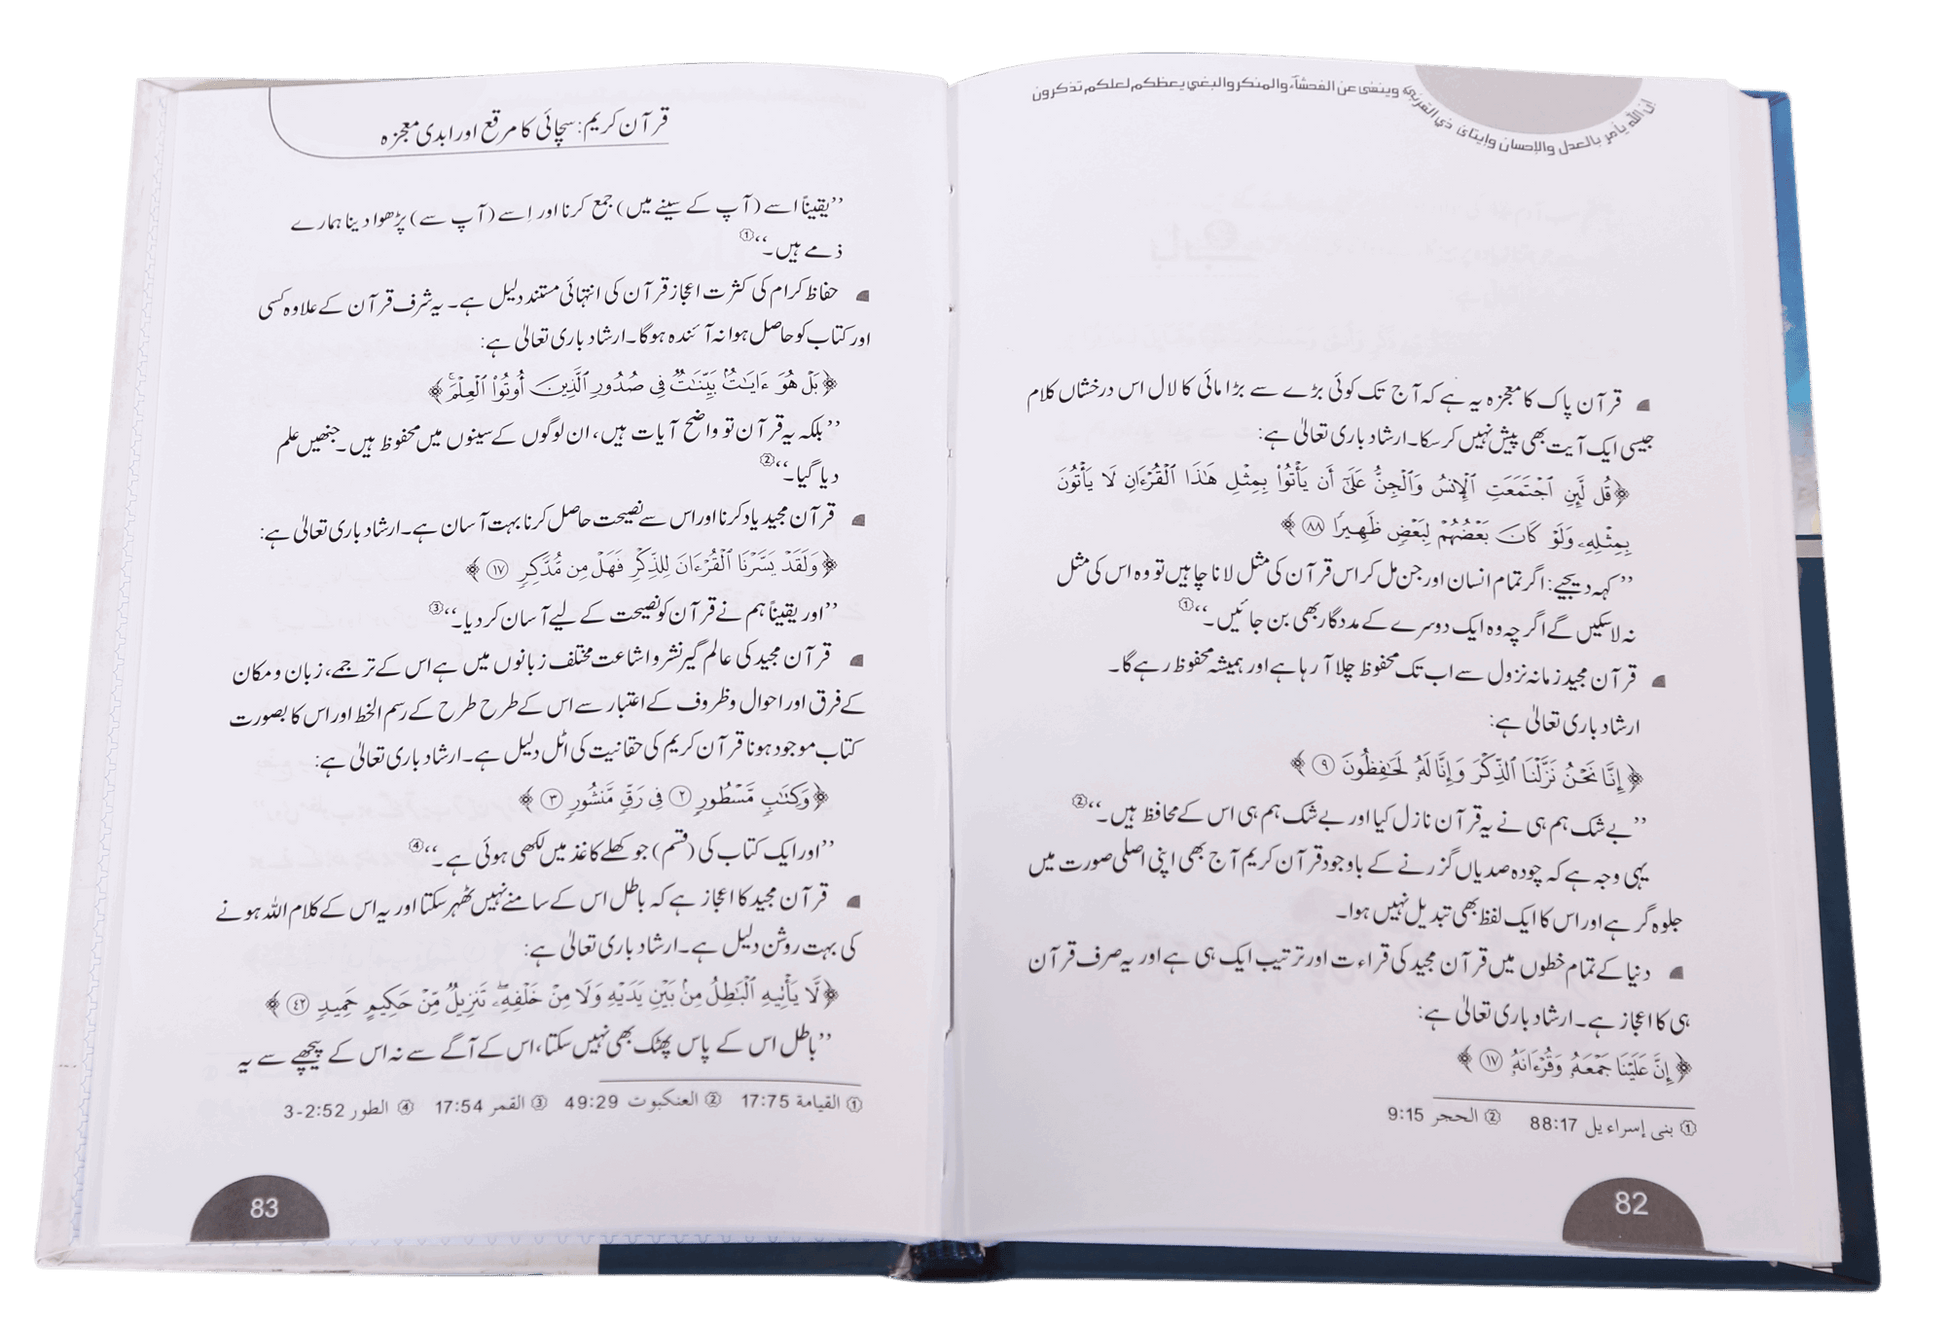 إن الله يأمر بالعدل والإحسان وإيتائ ذي القربى وينهى عن الفحشاء والمنكر والبغي يعظكم لعلكم تذكرون
قرآن پاک کا معجزہ یہ ہے کہ آج تک کوئی بڑے سے بڑا مائی کا لال اس درخشاں کلام
جیسی ایک آیت بھی پیش نہیں کر سکا۔ ارشاد باری تعالیٰ ہے:
﴿قُل لَّئِنِ ٱجْتَمَعَتِ ٱلْإِنسُ وَٱلْجِنُّ عَلَىٰٓ أَن يَأْتُوا۟ بِمِثْلِ هَـٰذَا ٱلْقُرْءَانِ لَا يَأْتُونَ
بِمِثْلِهِۦ وَلَوْ كَانَ بَعْضُهُمْ لِبَعْضٍ ظَهِيرًا ٨٨﴾
’’کہہ دیجیے: اگر تمام انسان اور جن مل کر اس قرآن کی مثل لانا چاہیں تو وہ اس کی مثل
نہ لا سکیں گے اگرچہ وہ ایک دوسرے کے مددگار بھی بن جائیں۔‘‘①
قرآن مجید زمانہ نزول سے اب تک محفوظ چلا آ رہا ہے اور ہمیشہ محفوظ رہے گا۔
ارشاد باری تعالیٰ ہے:
﴿إِنَّا نَحْنُ نَزَّلْنَا ٱلذِّكْرَ وَإِنَّا لَهُۥ لَحَـٰفِظُونَ ٩﴾
’’بے شک ہم ہی نے یہ قرآن نازل کیا اور بے شک ہم ہی اس کے محافظ ہیں۔‘‘②
یہی وجہ ہے کہ چودہ صدیاں گزرنے کے باوجود قرآن کریم آج بھی اپنی اصلی صورت میں
جلوہ گر ہے اور اس کا ایک لفظ بھی تبدیل نہیں ہوا۔
دنیا کے تمام خطوں میں قرآن مجید کی قراءت اور ترتیب ایک ہی ہے اور یہ صرف قرآن
ہی کا اعجاز ہے۔ ارشاد باری تعالیٰ ہے:
﴿إِنَّ عَلَيْنَا جَمْعَهُۥ وَقُرْءَانَهُۥ ١٧﴾
① بنی إسراءیل 88:17 ② الحجر 9:15
82
قرآن کریم: سچائی کا مرقع اور ابدی معجزہ
’’یقیناً اسے (آپ کے سینے میں) جمع کرنا اور اِسے (آپ سے) پڑھوا دینا ہمارے
ذمے ہیں۔‘‘①
حفاظ کرام کی کثرت اعجاز قرآن کی انتہائی مستند دلیل ہے۔ یہ شرف قرآن کے علاوہ کسی
اور کتاب کو حاصل ہوا نہ آئندہ ہوگا۔ ارشاد باری تعالیٰ ہے:
﴿بَلْ هُوَ ءَايَـٰتٌۢ بَيِّنَـٰتٌ فِى صُدُورِ ٱلَّذِينَ أُوتُوا۟ ٱلْعِلْمَ ۚ﴾
’’بلکہ یہ قرآن تو واضح آیات ہیں، ان لوگوں کے سینوں میں محفوظ ہیں۔ جنھیں علم
دیا گیا۔‘‘②
قرآن مجید یاد کرنا اور اس سے نصیحت حاصل کرنا بہت آسان ہے۔ ارشاد باری تعالیٰ ہے:
﴿وَلَقَدْ يَسَّرْنَا ٱلْقُرْءَانَ لِلذِّكْرِ فَهَلْ مِن مُّدَّكِرٍ ١٧﴾
’’اور یقیناً ہم نے قرآن کو نصیحت کے لیے آسان کر دیا۔‘‘③
قرآن مجید کی عالم گیر نشر و اشاعت مختلف زبانوں میں ہے اس کے ترجمے، زبان و مکان
کے فرق اور احوال و ظروف کے اعتبار سے اس کے طرح طرح کے رسم الخط اور اس کا بصورت
کتاب موجود ہونا قرآن کریم کی حقانیت کی اٹل دلیل ہے۔ ارشاد باری تعالیٰ ہے:
﴿وَكِتَـٰبٍ مَّسْطُورٍ ٢ فِى رَقٍّ مَّنشُورٍ ٣﴾
’’اور ایک کتاب کی (قسم) جو کھلے کاغذ میں لکھی ہوئی ہے۔‘‘④
قرآن مجید کا اعجاز ہے کہ باطل اس کے سامنے نہیں ٹھہر سکتا اور یہ اس کے کلام اللہ ہونے
کی بہت روشن دلیل ہے۔ ارشاد باری تعالیٰ ہے:
﴿لَّا يَأْتِيهِ ٱلْبَـٰطِلُ مِنۢ بَيْنِ يَدَيْهِ وَلَا مِنْ خَلْفِهِۦ ۖ تَنزِيلٌ مِّنْ حَكِيمٍ حَمِيدٍ ٤٢﴾
’’باطل اس کے پاس پھٹک بھی نہیں سکتا، اس کے آگے سے نہ اس کے پیچھے سے یہ
① القیامة 17:75 ② العنکبوت 49:29 ③ القمر 17:54 ④ الطور 52:2-3
83